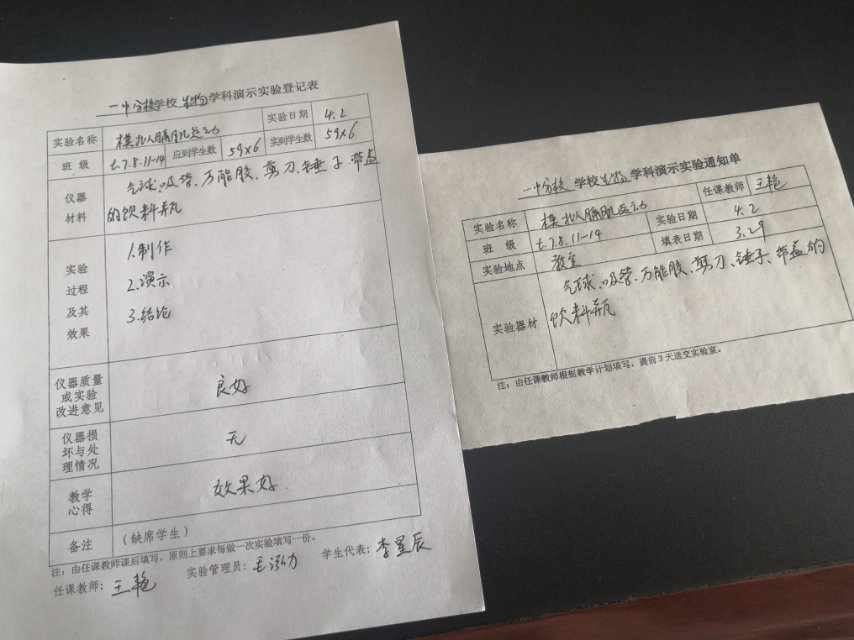 一中分校学校 生物学科演示实验登记表
实验名称 模拟人膈肌运动 实验日期 4.2
班 级 七.7.8.11-14 应到学生数 59×6 实到学生数 59×6
仪器材料 气球、吸管、万能胶、剪刀、锤子、带盖
的饮料瓶
实验过程及其效果
1.制作
2.演示
3.结论
仪器质量或实验改进意见 良好
仪器损坏与处理情况 无
教学心得 效果好.
备注 (缺席学生)
注:由任课教师课后填写,原则上要求每做一次实验填写一份。
任课教师: 王艳 实验管理员: 学生代表: 李星辰
一中分校 学校生物学科演示实验通知单
实验名称 模拟人膈肌运动 任课教师 王艳
班 级 七.7.8.11-14 实验日期 4.2
实验地点 教室 填表日期 3.29
实验器材 气球、吸管、万能胶、剪刀、锤子、带盖的
饮料瓶
注:由任课教师根据教学计划填写,提前3天送交实验室。